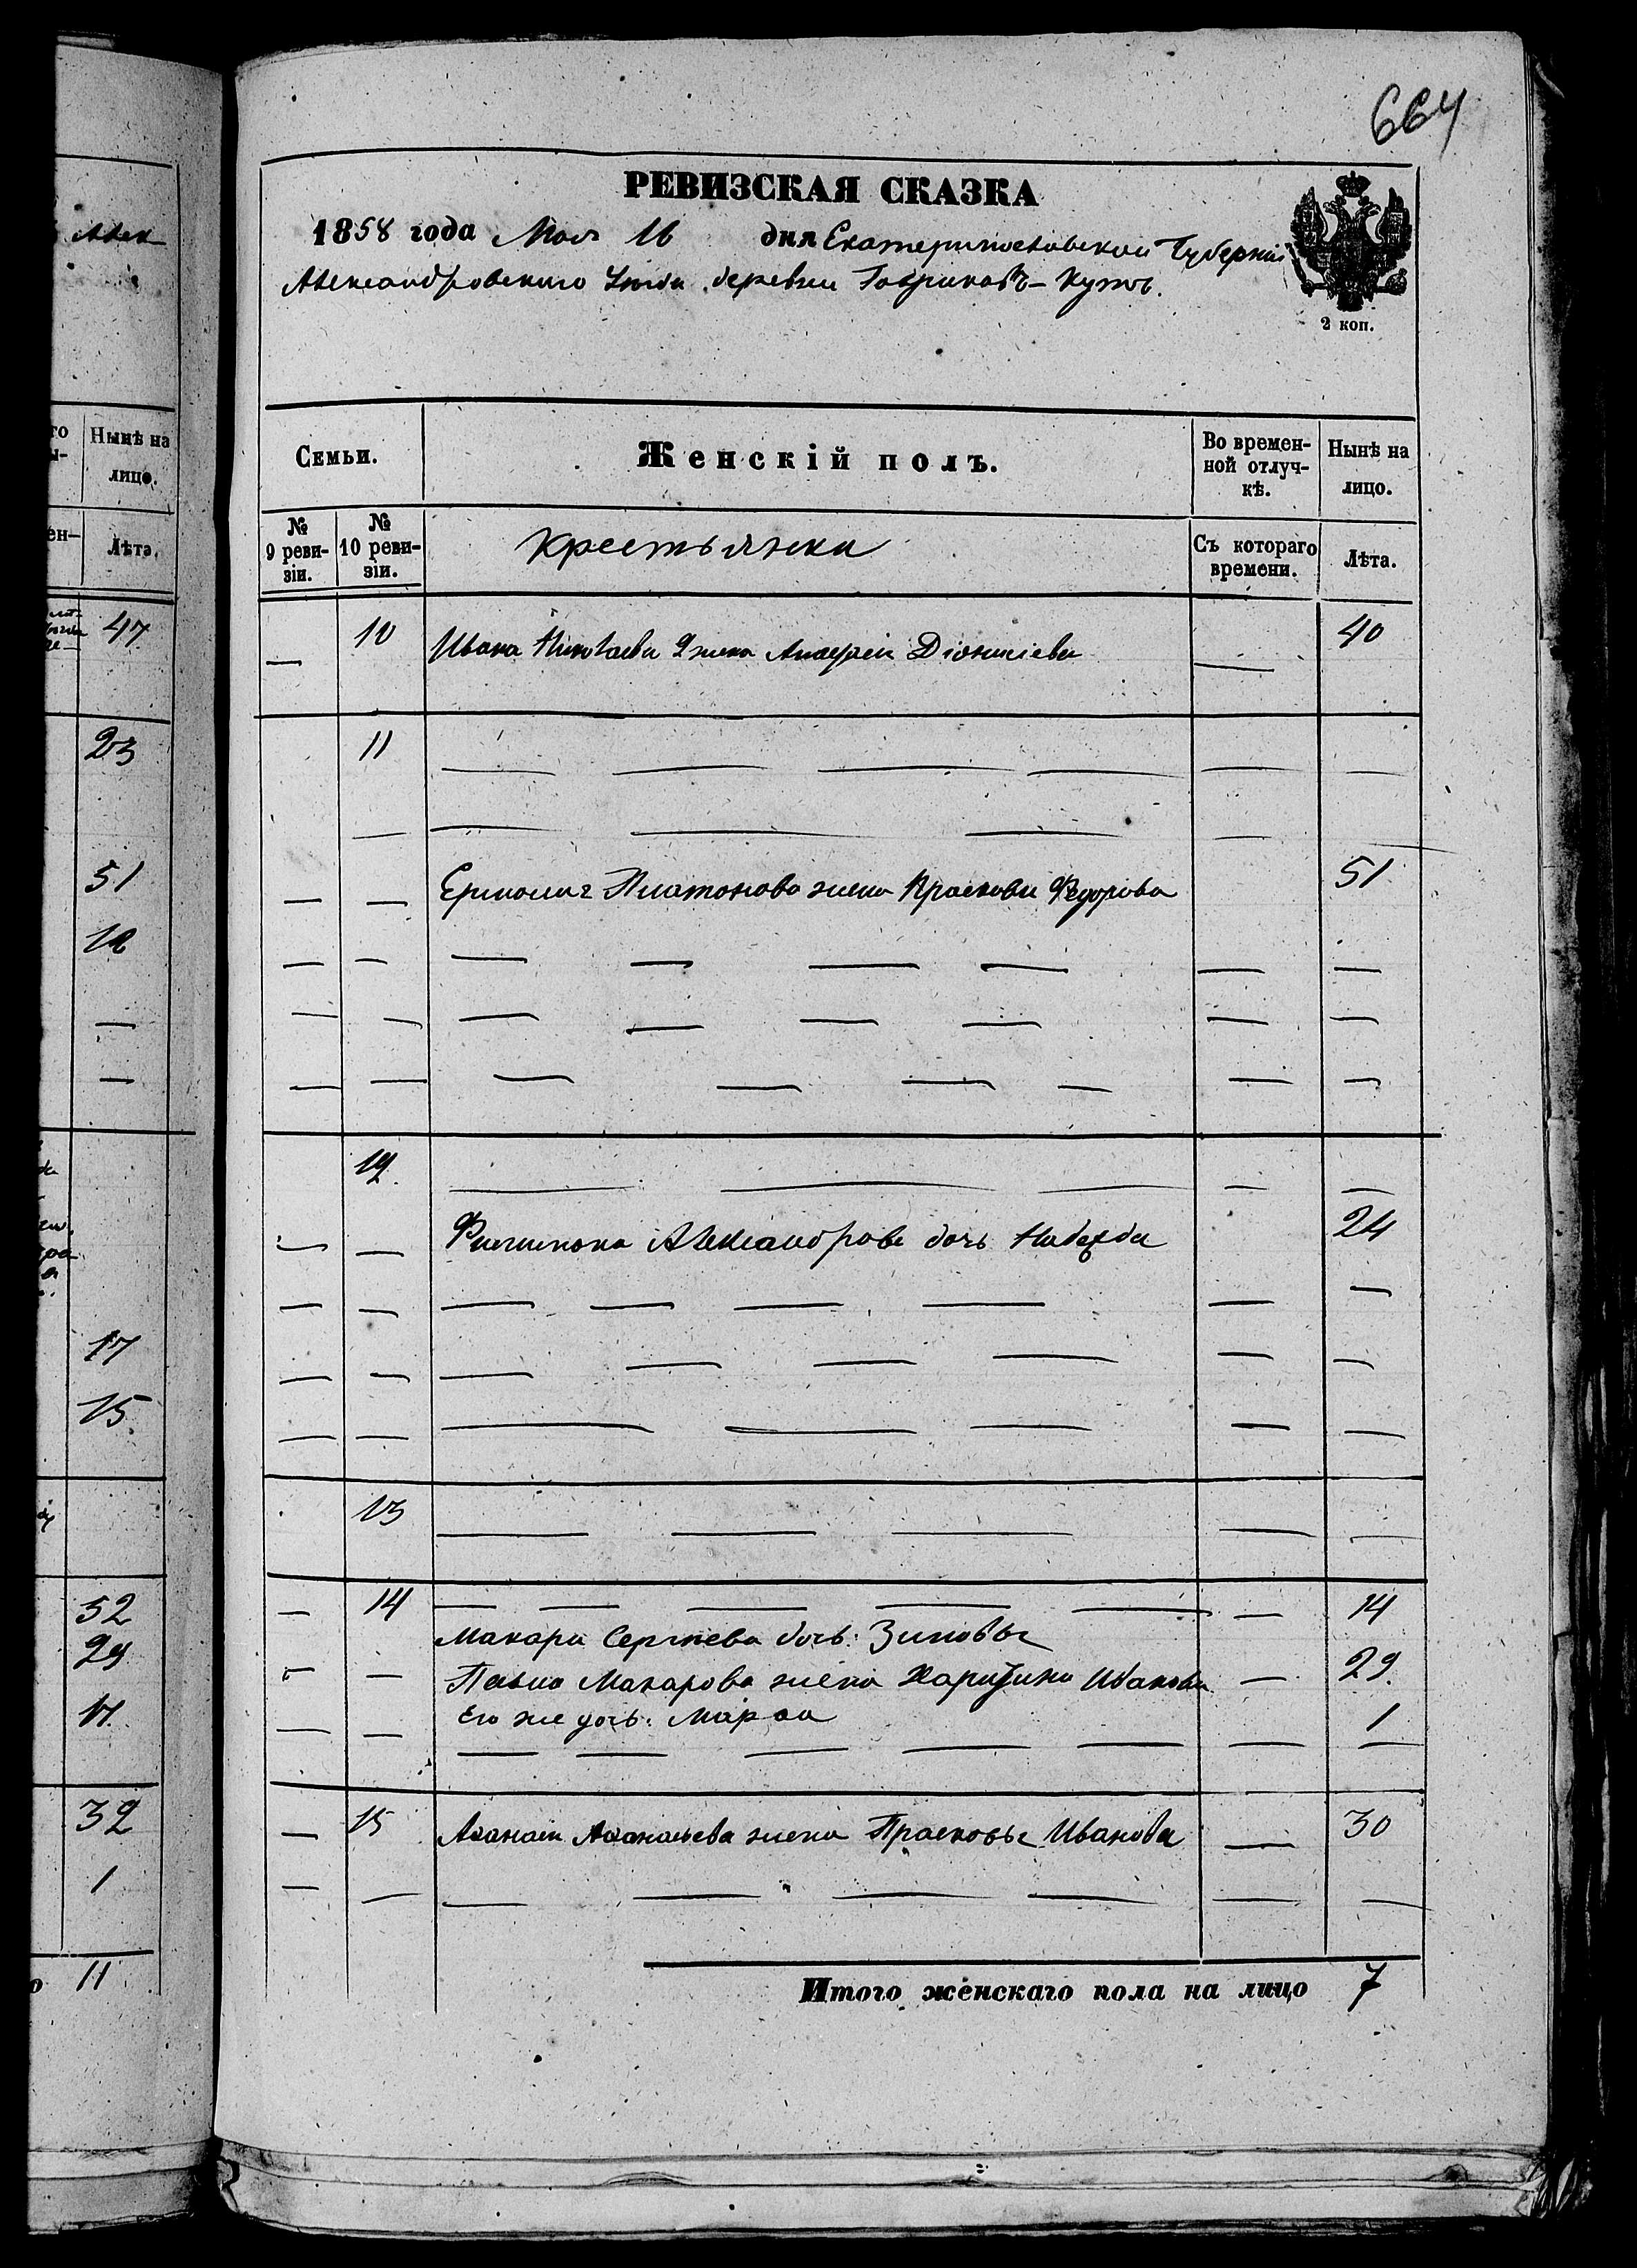 664
РЕВИЗСКАЯ СКАЗКА
1858 года Мая 16 дня Екатеринославской Губерніи
Александровскаго Уезда деревни Гавриковъ-Кутъ.
2 коп.
Семьи.
Женскій полъ.
Во времен-
ной отлуч-
кѣ.
Нынѣ на
лицо.
№
9 реви-
зіи.
№
10 реви-
зіи.
Крестьянки
Съ котораго
времени.
Лѣта.
— 10 Ивана Николаева 2 жена Діонисіева — 40
11
Ермолая Платонова жена Прасковья Федорова 51
12
Филимона Александрова дочь Надежда 24
13
14 14
Макара Сергѣева дочь Зиновья
Макарова жена Харитина Иванова — 29.
Его же дочь Марфа 1
— 15 Афанасія Афанасьева жена Прасковья Иванова — 30
Итого женскаго пола на лицо 7
Нынѣ на
лицо.
Лѣта.
47
23
51
12
17
15
52
29
32
1
11